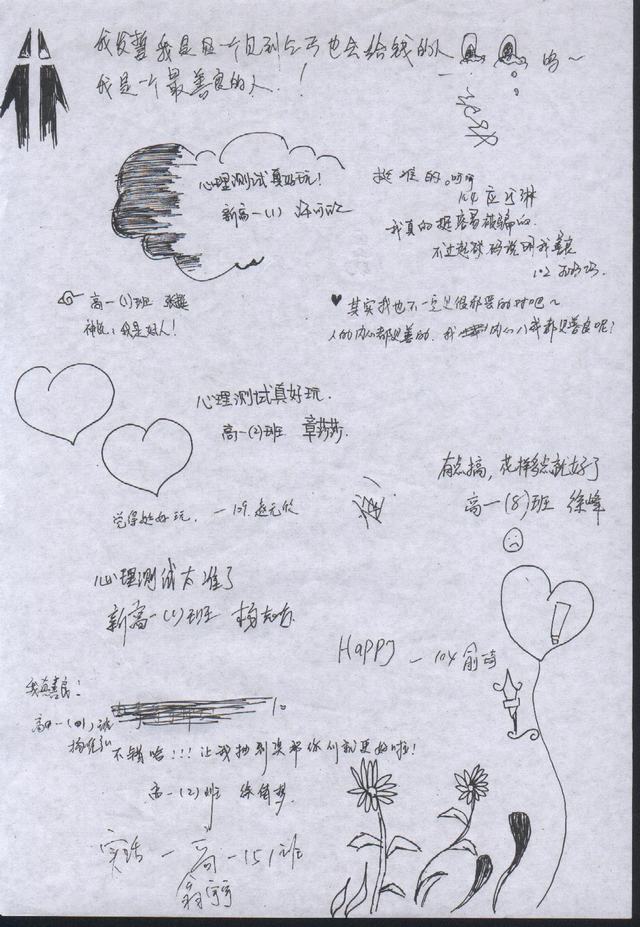 我发誓我是一个见到乞丐也会给钱的人
呜～
我是一个最善良的人！
心理测试真好玩！
新高一(1)
挺准的。呵呵
104 应
我真的挺容易被骗的.
不过起码说明我善良
102
高一(1)班
神经，我是好人！
♥ 其实我也不一定是很邪恶的对吧～
人的内心都是善的，我 内心 都是善良呢？
心理测试真好玩.
高一(2)班 章莎莎.
觉得挺好玩. — 109. 赵元欣
有点搞，花样多点就好了
高一(8)班 徐峰
心理测试太准了
新高一(1)班 杨
Happy — 104 俞奇
我真善良：
10
高一(01)
不错哈!!! 让我抽到奖那你们就更好啦！
高一(2)班 徐倩梦.
实话 — 高一 151班
翁宇宇